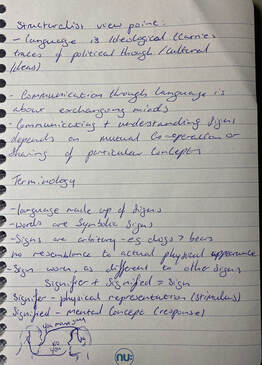 Structuralist view point:
- language is ideological (carries
traces of political though / cultural
ideas)
- Communication though language is
about exchanging minds
- Communicating + understanding signs
depends on mutual co-operation or
sharing of particular concepts
Terminology
- language made up of signs
- words are symbolic signs
- Signs are arbitrary - e.g. dogs > bears
no resemblance to actual physical appearance
- Sign work, as different to other signs
Signifier + Signified = Sign
Signifer - physical representation (stimulus)
Signified - mental concept (response)
nu: